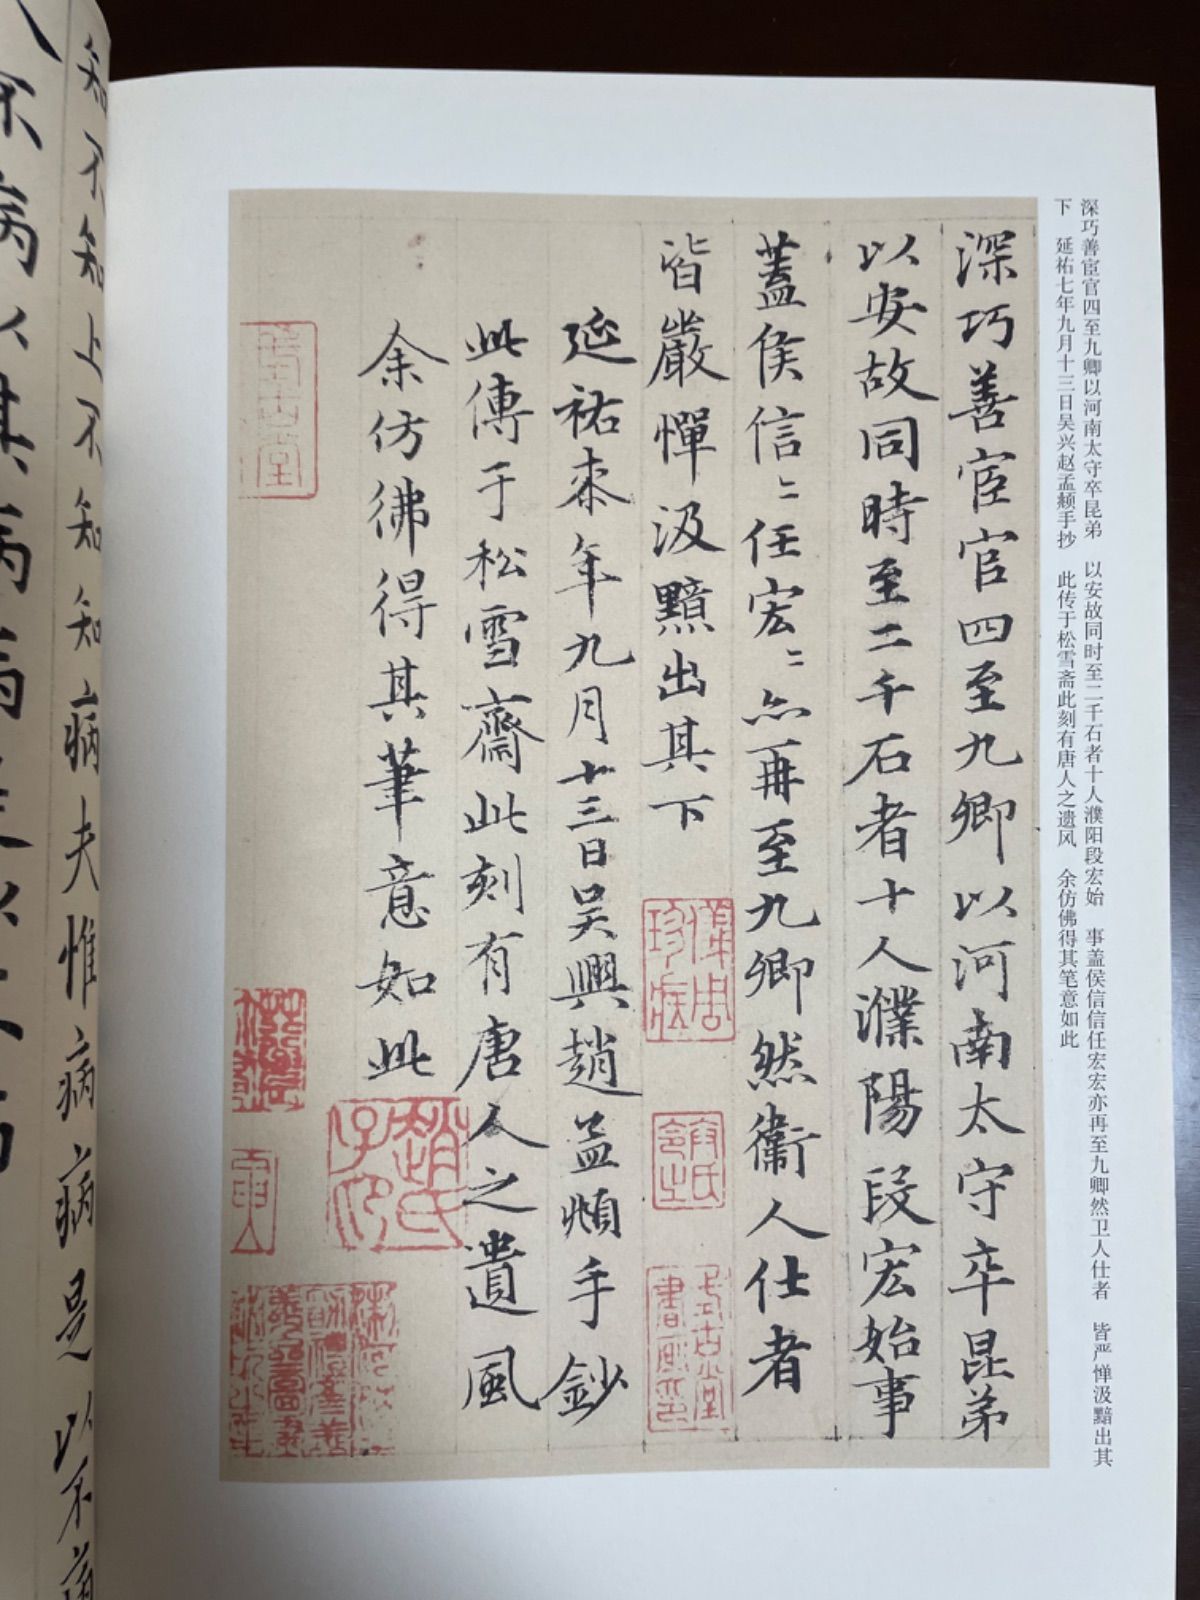 深巧善宦官四至九卿以河南太守卒昆弟　以安故同时至二千石者十人濮阳段宏始　事盖侯信信任宏宏亦再至九卿然卫人仕者　皆严惮汲黯出其
下　延祐七年九月十三日吴兴赵孟頫手抄　此传于松雪斋此刻有唐人之遗风　余仿佛得其笔意如此
深巧善宦官四至九卿以河南太守卒昆弟
以安故同時至二千石者十人濮陽段宏始事
蓋侯信〻任宏〻亦再至九卿然衞人仕者
皆嚴憚汲黯出其下
延祐桼年九月十三日吴興趙孟頫手鈔
此傳于松雪齋此刻有唐人之遺風
余仿彿得其筆意如此
趙氏子昂
知不知上不知知病夫惟病病是以不病